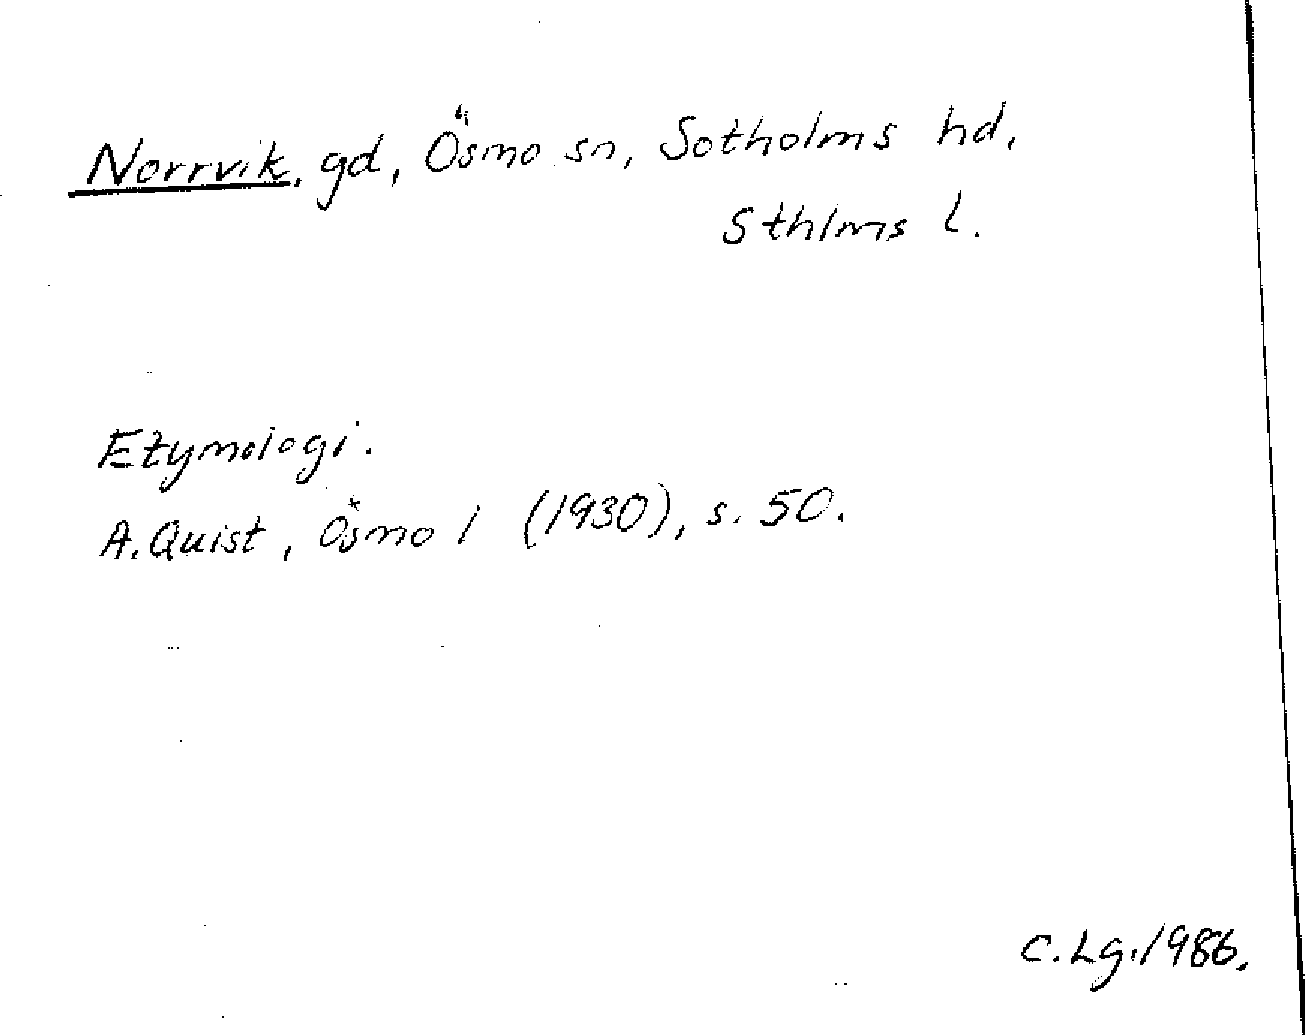 Norrvik, gd, Ösmo sn, Sotholms hd,
Sthlms l.
Etymologi.
A. Quist, Ösmo 1 (1930), s. 50.
C. Lg. 1986.